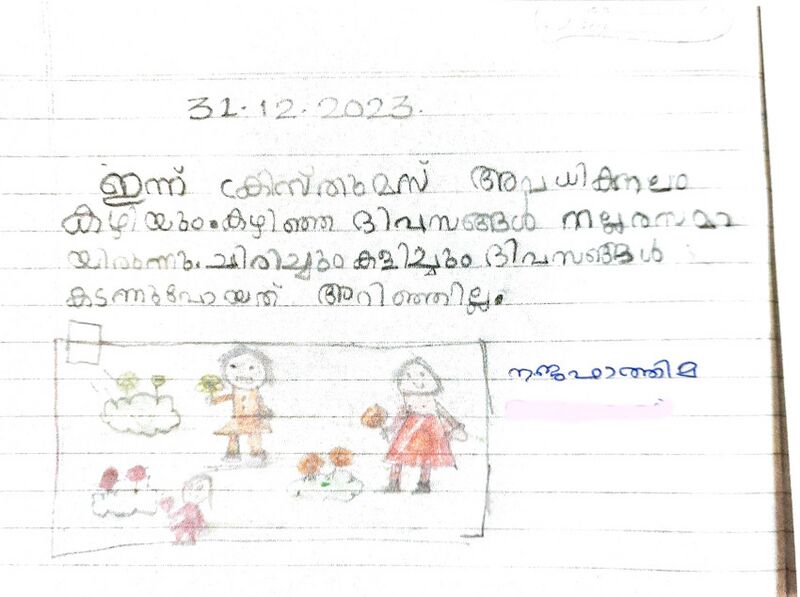 31.12.2023.
ഇന്ന് ക്രിസ്തുമസ് അവധിക്കാലം
കഴിയും. കഴിഞ്ഞ ദിവസങ്ങൾ നല്ലരസമാ
യിരുന്നു. ചിരിച്ചും കളിച്ചും ദിവസങ്ങൾ
കടന്നുപോയത് അറിഞ്ഞില്ല.